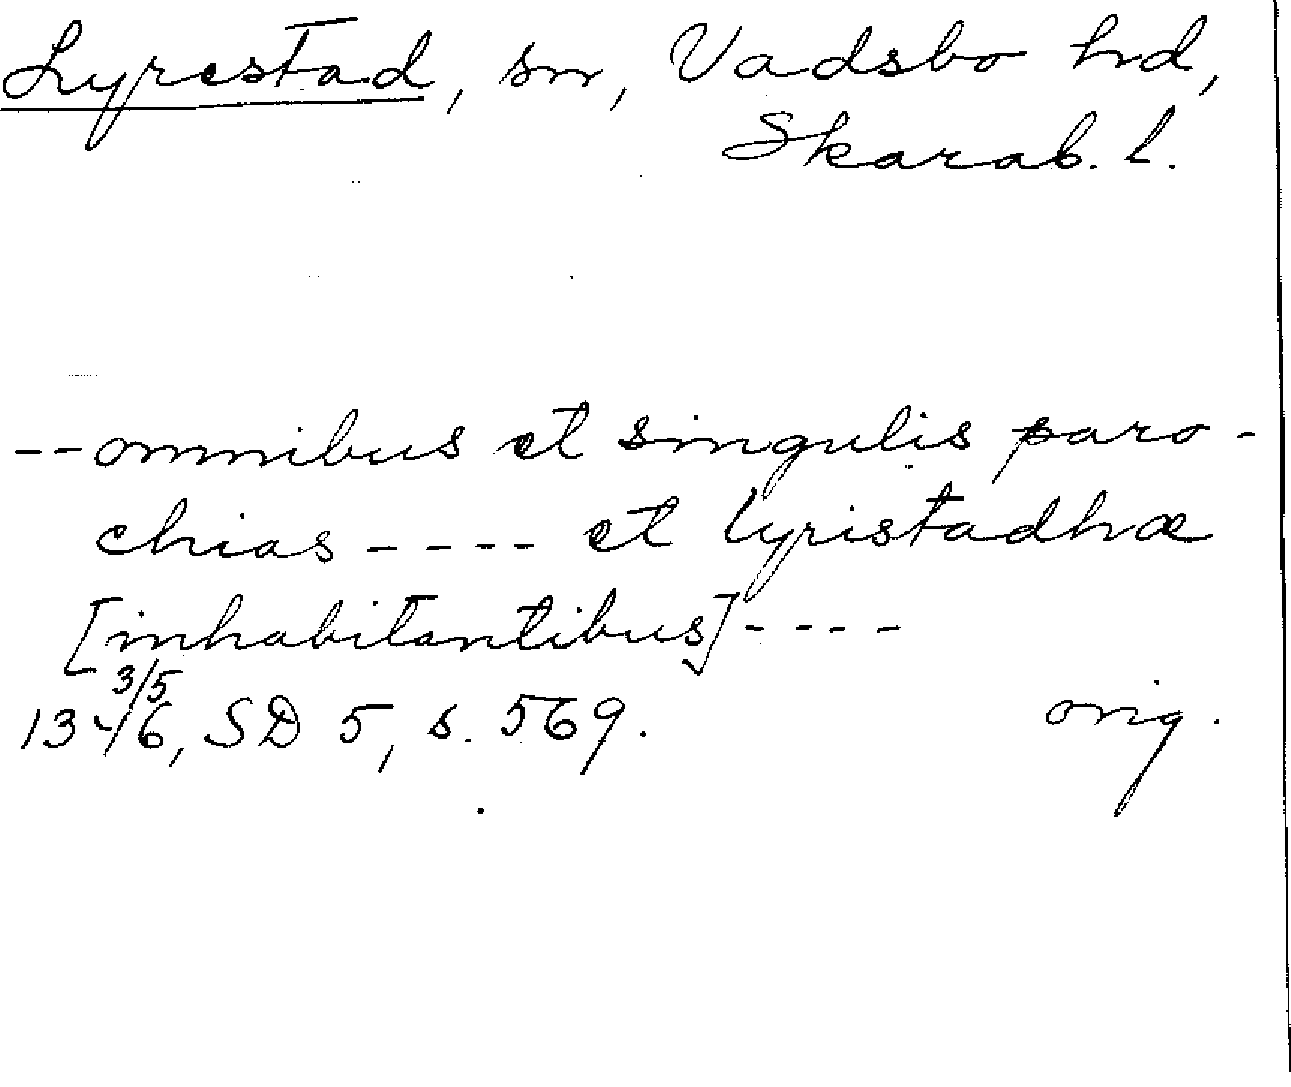 Lyrestad, sn, Vadsbo hd,
Skarab. l.
--omnibus et singulis paro-
chias ---- et lyristadhæ
[inhabitantibus] ----
3/5
SD 5, s. 569. orig.